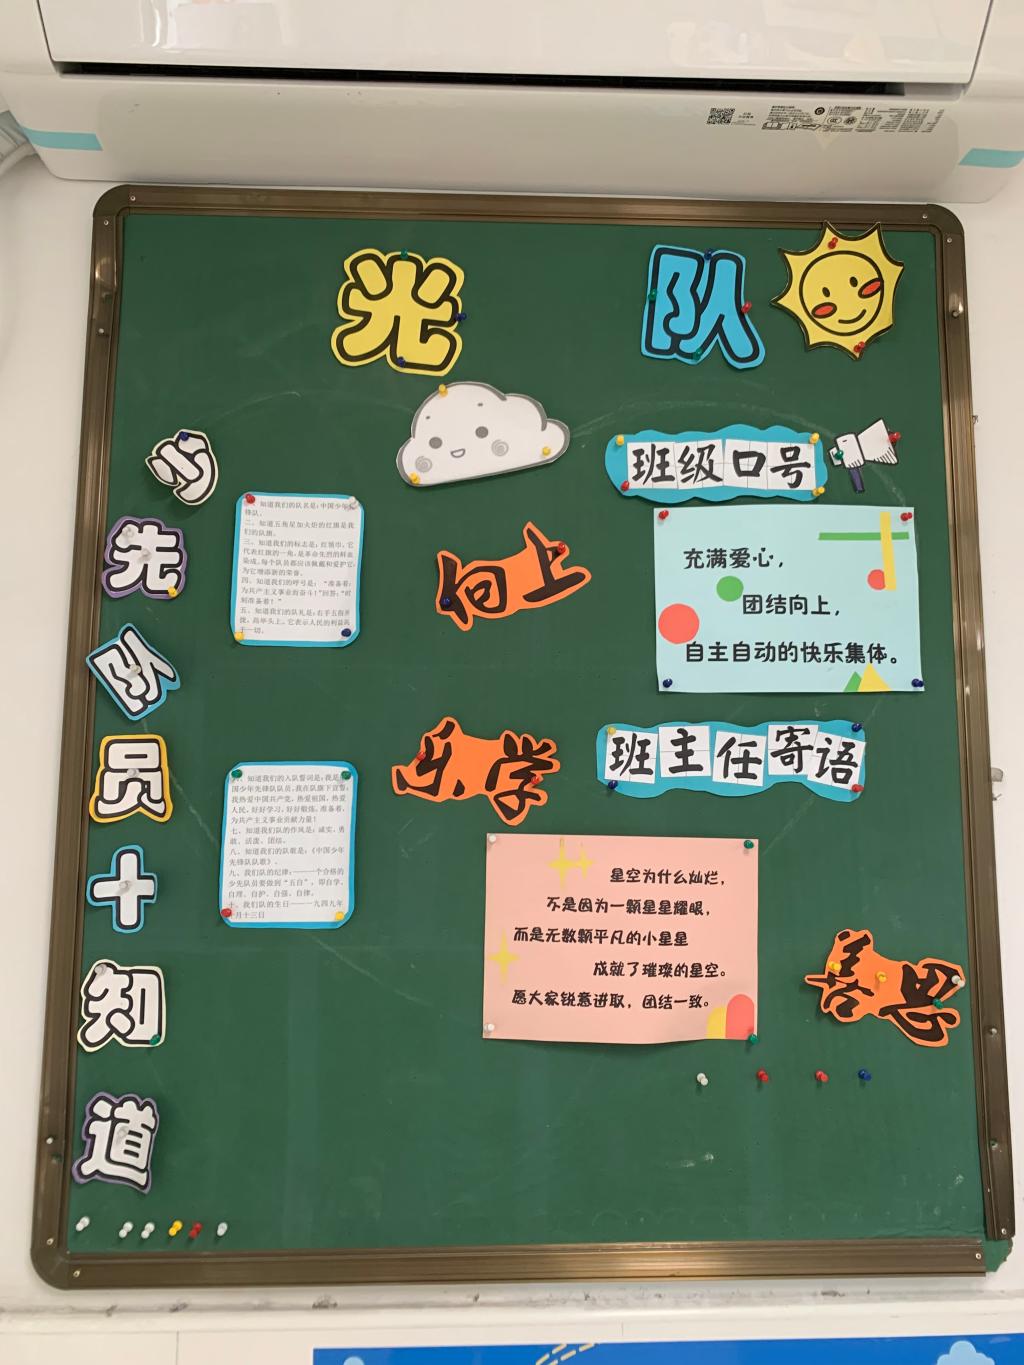 光 队
少先队员十知道
一、知道我们的队名是:中国少年先锋队。
二、知道五角星加火炬的红旗是我们的队旗。
三、知道我们的标志是:红领巾。它代表红旗的一角,是革命先烈的鲜血染成。每个队员都应该佩戴和爱护它,为它增添新的荣誉。
四、知道我们的呼号是:“准备着:为共产主义事业而奋斗!”回答:“时刻准备着!”
五、知道我们的队礼是:右手五指并拢,高举头上。它表示人民的利益高于一切。
六、知道我们的入队誓词是:我是中国少年先锋队队员。我在队旗下宣誓:我热爱中国共产党,热爱祖国,热爱人民,好好学习,好好锻炼,准备着,为共产主义事业贡献力量!
七、知道我们的作风是:诚实、勇敢、活泼、团结。
八、知道我们的队歌是:《中国少年先锋队队歌》。
九、我们队的纪律:——一个合格的少先队员要做到“五自”,即自学、自理、自护、自强、自律。
十、我们队的生日——一九四九年十月十三日
向上
乐学
善思
班级口号
充满爱心,
团结向上,
自主自动的快乐集体。
班主任寄语
星空为什么灿烂,
不是因为一颗星星耀眼,
而是无数颗平凡的小星星
成就了璀璨的星空。
愿大家锐意进取,团结一致。